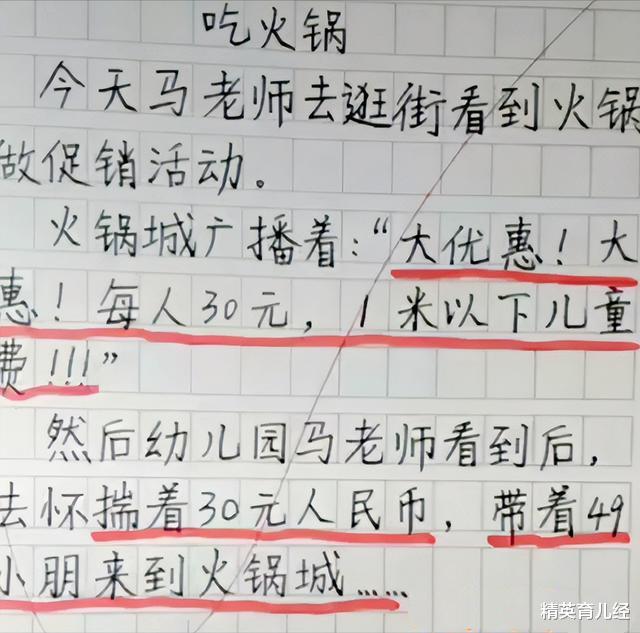 吃火锅
今天马老师去逛街看到火锅
做促销活动。
火锅城广播着:“大优惠!大
惠!每人30元,1米以下儿童
费!!!”
然后幼儿园马老师看到后,
去怀揣着30元人民币,带着49
小朋来到火锅城……
精英育儿经